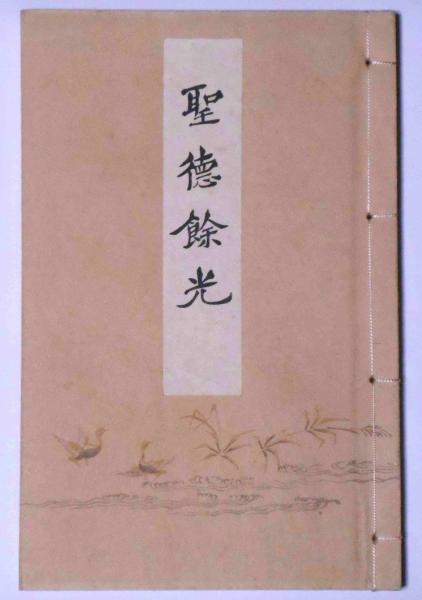 聖德餘光